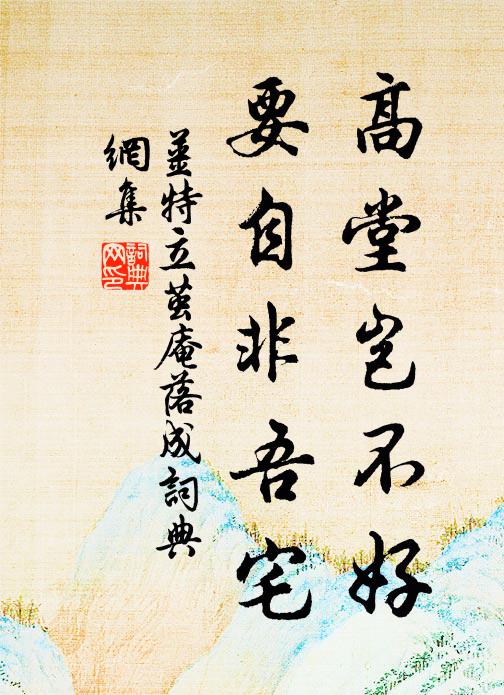 高堂豈不好
要自非吾宅
薑特立茧庵落成詞典
網集
詞典
网印